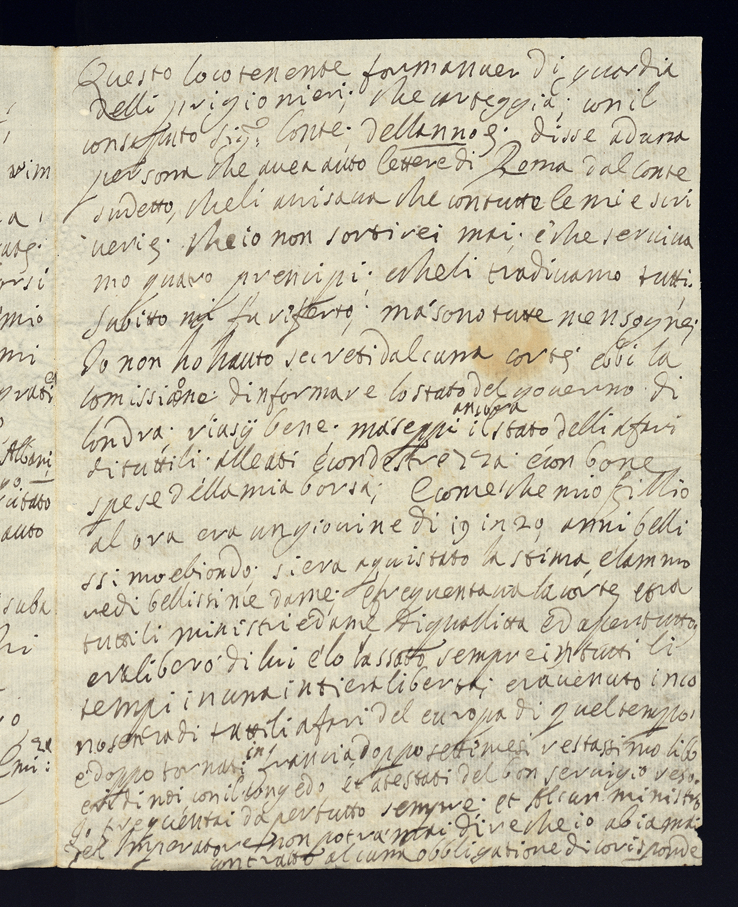 Questo locotenente formanuer di guardia
delli prigionieri; che carteggia; con il
Sigr. Conte; dellannoe; disse aduna
persona che avea auto lettere di Roma dal conte
sudetto, cheli avisava che contutte le mie scri
verie; cheio non sortirei mai; e che serviva
mo quaro prencipi; e cheli tradivamo tutti.
subitto mi fu riferto; má sono tutte mensogne;
Io non hó hauto secreti dalcuna corte; ebbi la
comissione dinformare lo stato del governo di
londra; riasij bene; ma seppi ancora il stato delli afari
di tuttili alleati é con destrezza e con bone
spese della mia borsa; e come che mio fillio
al ora era un giovine di 19 in 20 anni belli
ssimo ebiondo; si era aquistato la stima elammo
re di bellissime dame; e frequentava la corte et ra
tuttili ministri e dame di quallita ed apertutto
era libero di lui e lo lassatto sempre in tutti li
tempi in una intiera libertá; era venuto in co
noscenza di tuttili afari del europa di quel tempo;
é doppo tornati in francia doppo setti mesi restassimo libe
con il congedo et atestati del bon servigio reso.
frequentai da pertutto sempre et Alcun ministro
del Imperatore non potrá mai dire che io abia mai
contratto alcuna obbligatione di corisponde